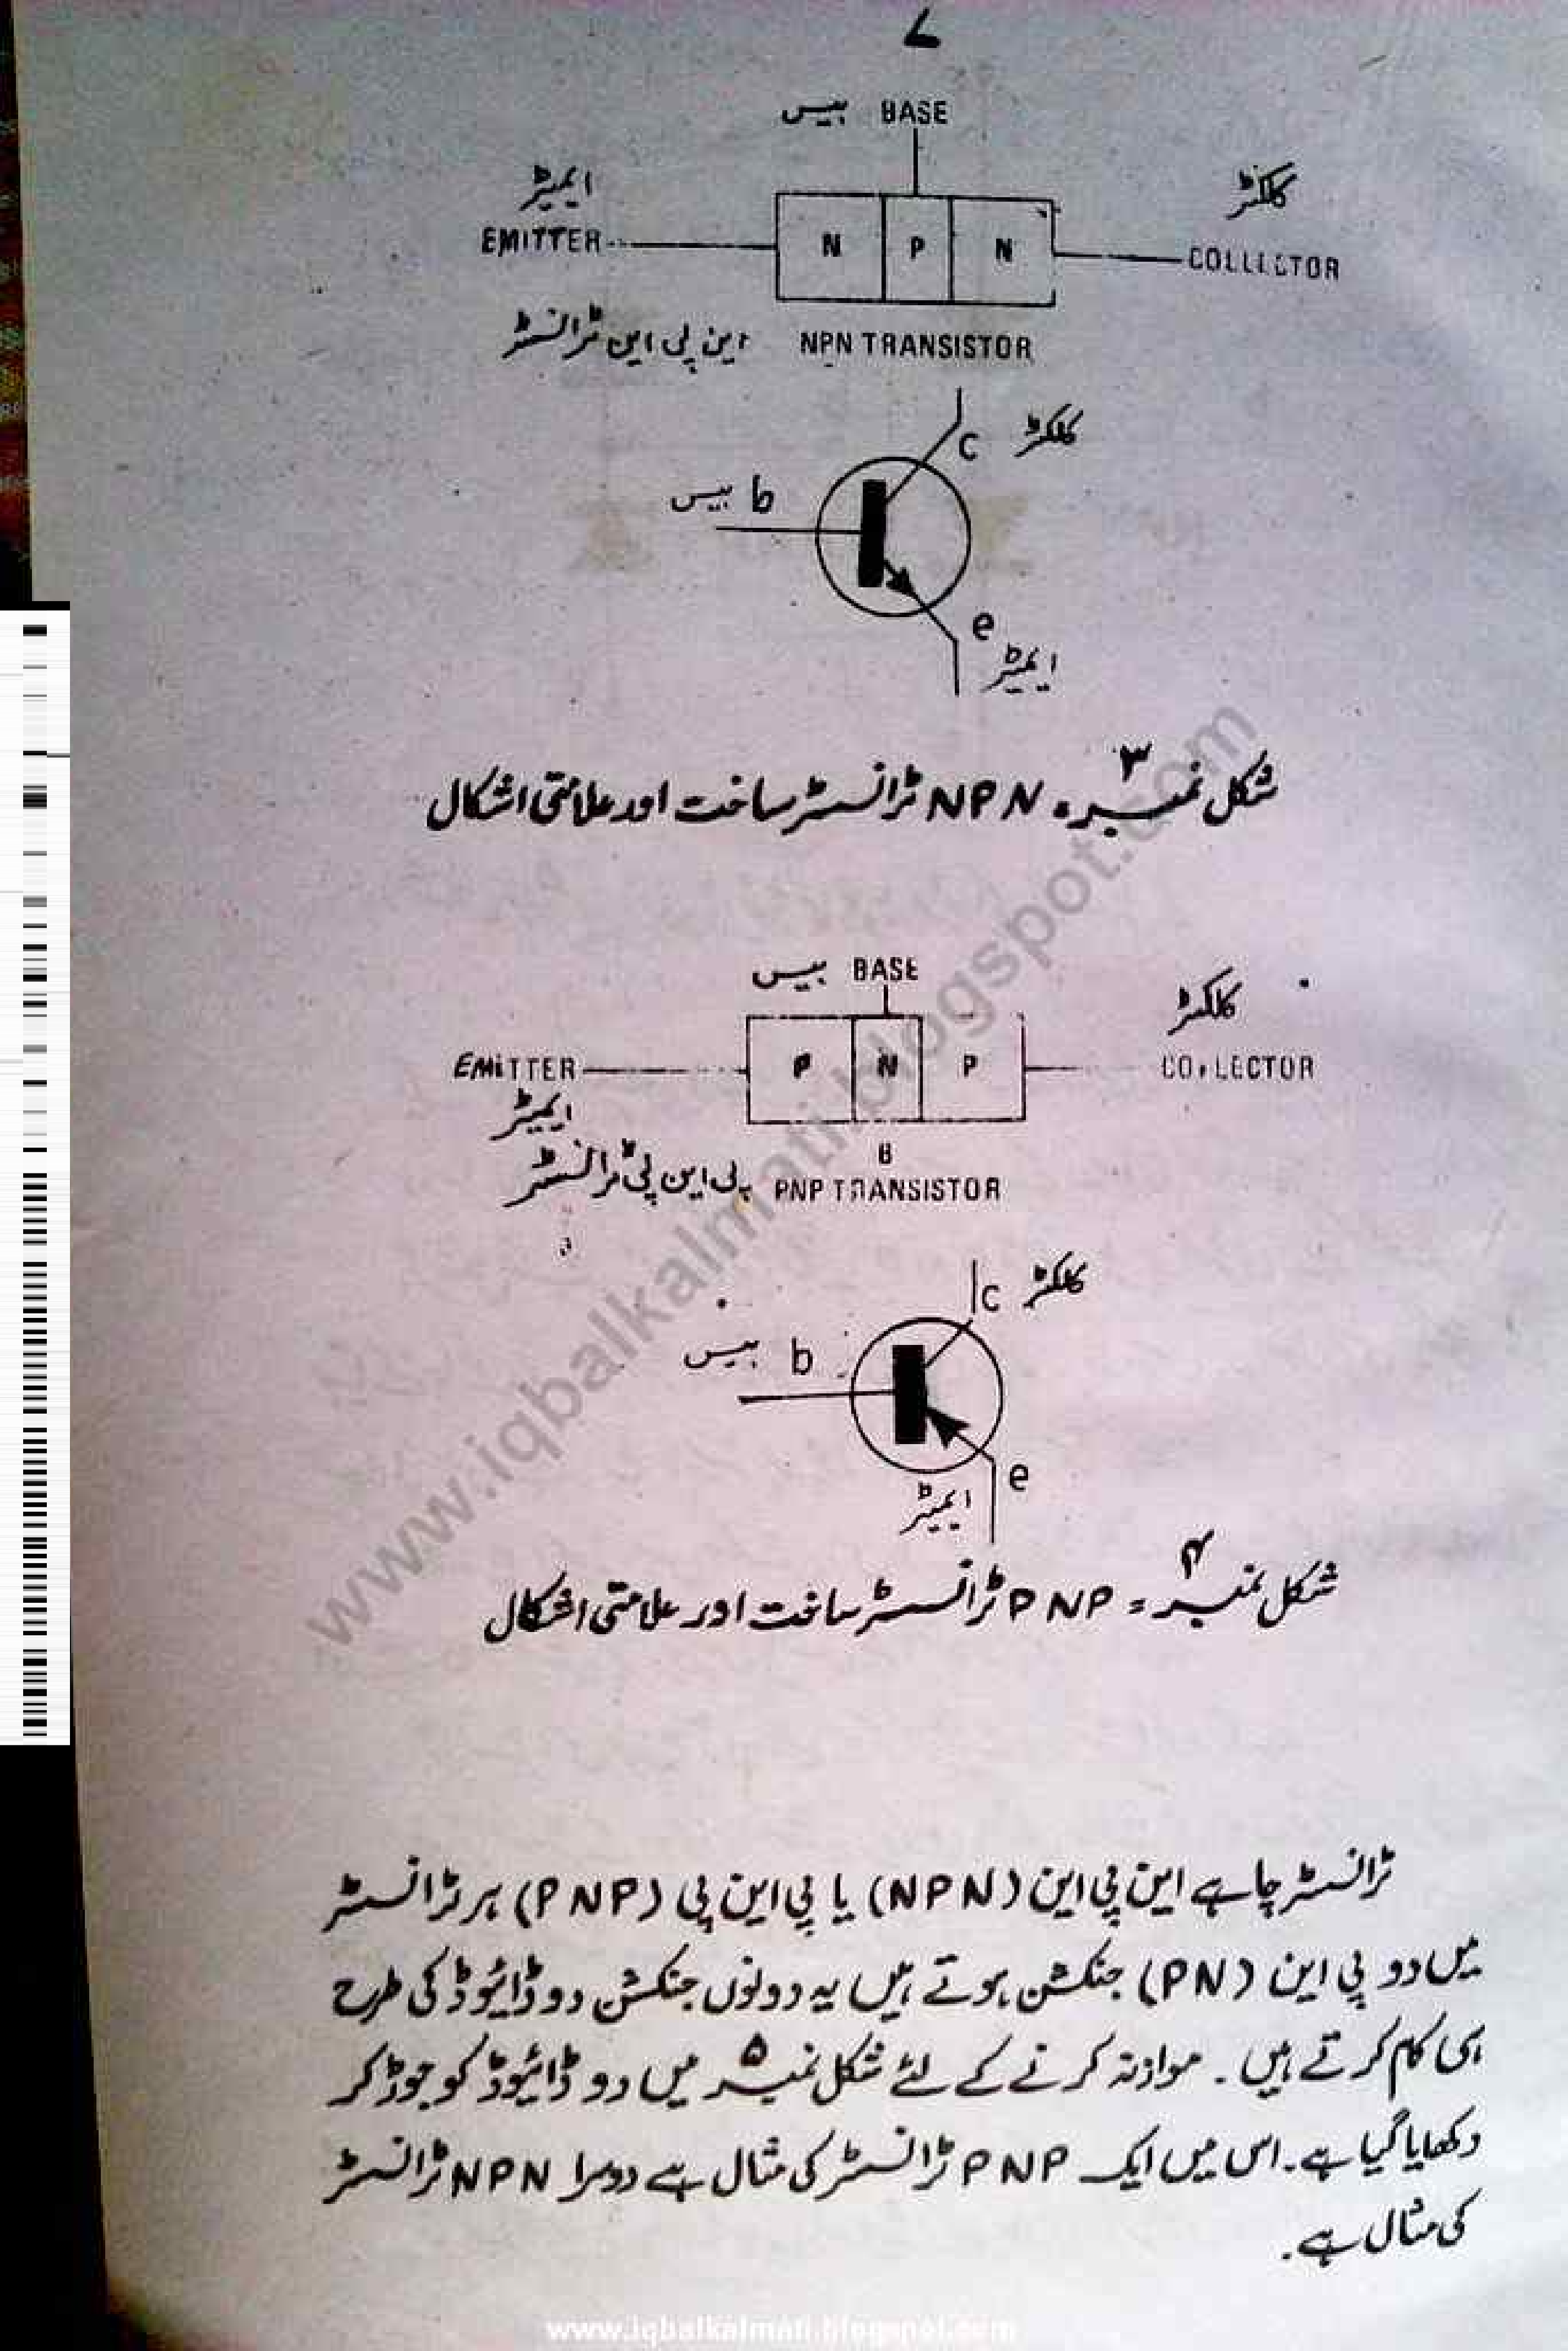 ۷
بیس BASE
ایمیٹر
کلکٹر
EMITTER
N P N
COLLLCTOR
این پی این ٹرانسسٹر NPN TRANSISTOR
c کلکٹر
بیس b
e
ایمیٹر
شکل نمبر ۳ = NPN ٹرانسسٹر ساخت اور علامتی اشکال
بیس BASE
کلکٹر
EMiTTER
P N P
COLLECTOR
ایمیٹر
B
پی این پی ٹرانسسٹر PNP TRANSISTOR
c کلکٹر
بیس b
e
ایمیٹر
شکل نمبر ۴ = PNP ٹرانسسٹر ساخت اور علامتی اشکال
ٹرانسسٹر چاہے این پی این (NPN) یا پی این پی (PNP) ہر ٹرانسسٹر
میں دو پی این (PN) جنکشن ہوتے ہیں یہ دونوں جنکشن دو ڈائیوڈ کی طرح
ہی کام کرتے ہیں۔ موازنہ کرنے کے لئے شکل نمبر ۵ میں دو ڈائیوڈ کو جوڑ کر
دکھایا گیا ہے۔ اس میں ایک PNP ٹرانسسٹر کی مثال ہے دوسرا NPN ٹرانسسٹر
کی مثال ہے۔
www.iqbalkalmati.blogspot.com
www.iqbalkalmati.blogspot.com